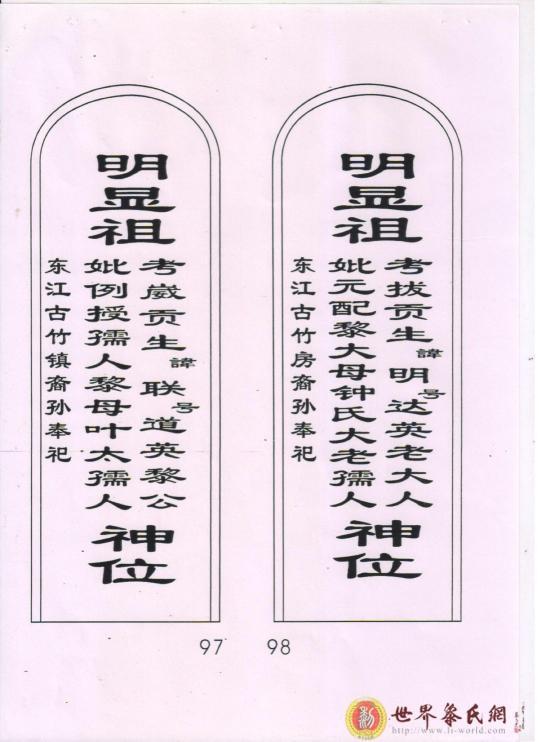 明显祖
考拔贡生諱明号达英老大人
妣元配黎大母钟氏大老孺人
神位
东江古竹房裔孙奉祀
98
明显祖
考崴贡生諱联号道英黎公
妣例授孺人黎母叶太孺人
神位
东江古竹镇裔孙奉祀
97
世界黎氏網
http://www.li-world.com